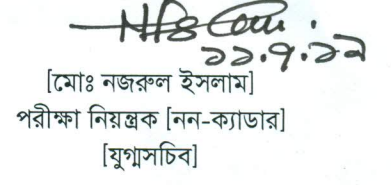 ১১.৭.১৯
[মোঃ নজরুল ইসলাম]
পরীক্ষা নিয়ন্ত্রক [নন-ক্যাডার]
[যুগ্মসচিব]